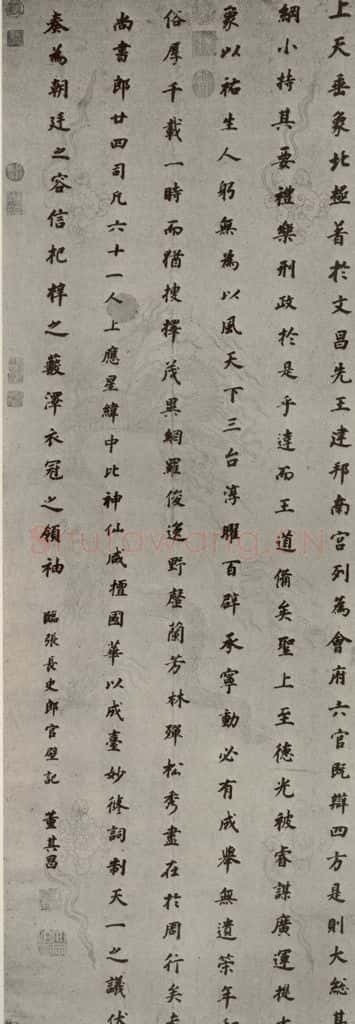 上天垂象北極著於文昌先王建邦南宮列為會府六官既辯四方是則大総其
綱小持其要禮樂刑政於是乎達而王道備矣聖上至德光被睿謀廣運提
象以祐生人躬無為以風天下三台淳曜百辟承寧動必有成舉無遺策年
俗厚千載一時而猶搜擇茂異網羅俊逸野罄蘭芳林殫松秀盡在於周行矣
尚書郎廿四司凡六十一人上應星緯中比神仙咸擅國華以成臺妙修詞制天一之議伏
奏為朝廷之容信杞梓之藪澤衣冠之領袖
臨張長史郎官壁記 董其昌
Shufawang.cn